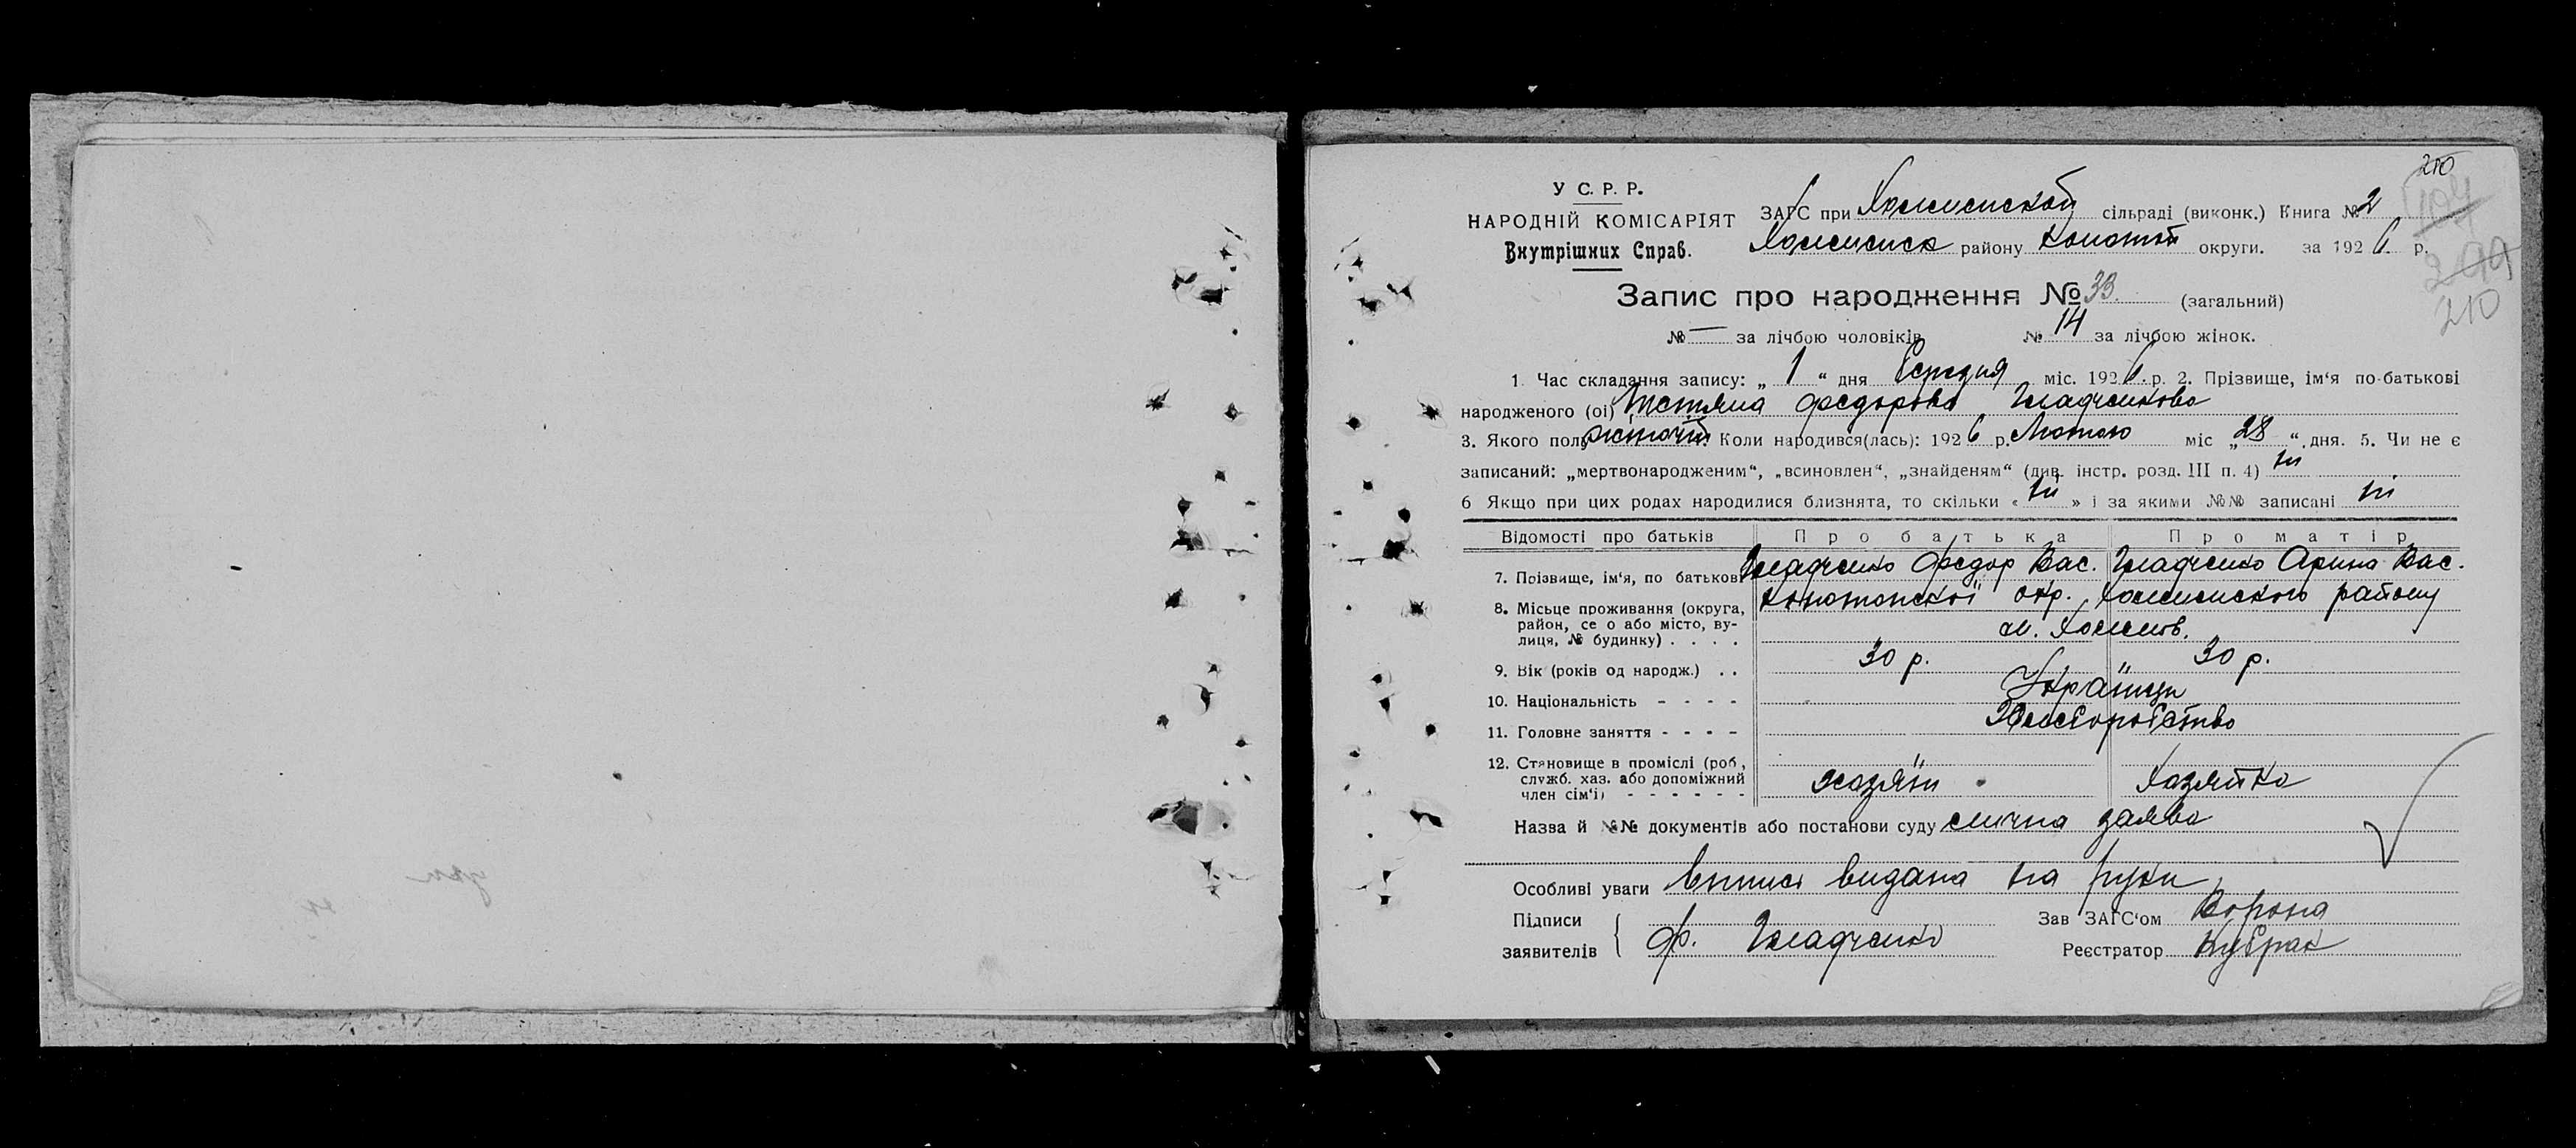 210
У С. Р. Р.
НАРОДНІЙ КОМІСАРІЯТ
Внутрішних Справ.
ЗАГС при сільраді (виконк.) Книга № 2
104
району Конотоп округи. за 1926 р.
299
210
Запис про народження № 33. (загальний)
№ — за лічбою чоловіків № 14 за лічбою жінок.
1. Час складання запису: „ 1 “ дня міс. 1926 р. 2. Прізвище, ім‘я по-батькові
народженого (ої) Тетяна Федорова Гладченкова
3. Якого полу жіночій Коли народився(лась): 1926 р. Лютого міс „ 28 “ дня. 5. Чи не є
записаний: „мертвонародженим“, „всиновлен“, „знайденям“ (див. інстр. розд. III п. 4) ні
6 Якщо при цих родах народилися близнята, то скільки « ні » і за якими №№ записані ні
Відомості про батьків Про батька Про матір
7. Прізвище, ім‘я, по батькові Гладченко Федор Вас. Гладченко Арина Вас.
8. Місьце проживання (округа, Конотопської окр., району
район, се о або місто, ву-
лиця, № будинку) . . . . м.
9. Вік (років од народж.) . . 30 р. 30 р.
10. Національність - - - - Українці
11. Головне заняття - - - - Хліборобство
12. Становище в проміслі (роб,
служб. хаз. або допоміжний хазяїн Хазяйка
член сім‘ї) - - - - - -
Назва й №№ документів або постанови суду заява
Особливі уваги видана на руки
Підписи Зав ЗАГС‘ом Ворона
заявителів Ф. Гладченко Реєстратор Кубрак